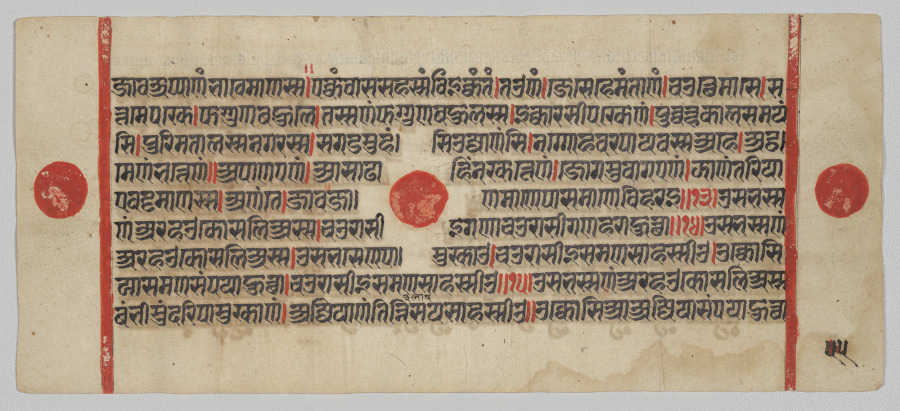 जावअप्पाणंभावेमाणस्स।एक्कंवाससहस्संविइक्कंतं।तउणं।जेसेहेमंताणं।चउत्थेमासे।स
त्तमेपरके।फग्गुणबहुले।तस्सणंफग्गुणबहुलस्स।इक्कारसीपरकेणं।पुव्वण्हकालसमयं
सि।पुरिमतालस्सनगरस्स।सगडमुहं। सिउज्जाणंसि।नग्गोहवरपायवस्सअहे।अट्ठ।
मेणंभत्तेणं॥अपाणएणं।आसाढा हिंनरकत्तेणं।जोगमुवागएणं।झाणंतरिया
एवट्टमाणस्स।अणंते।जावजा। णमाणेपासमाणेविहरइ॥१३।उसभस्स
णंअरहउकोसलिअस्स।चउरासी इगणाचउरासीगणहराहुत्था॥१४।उसभस्सणं
अरहउकोसलिअस्स।उसभसेणपा। मुरकाउ।चउरासीइसमणसाहस्सीउ।उक्कोसि
आसमणसंपयाहुत्था।चउरासीइसमणसाहस्सीउ॥१५॥उसभस्सणंअरहउकोसलिअस्स
बंभीसुंदरिपामुरकाणं।अज्जियाणंतिन्निसयसाहस्सीउ॥उक्कोसिआअज्जियासंपयाहुत्था